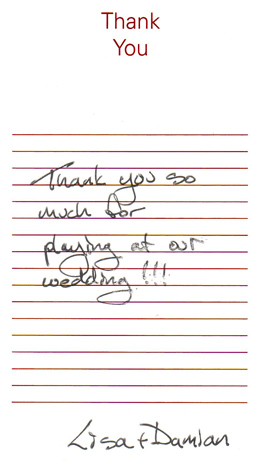 Thank
You
Thank you so
much for
playing at our
wedding!!!
Lisa + Damian